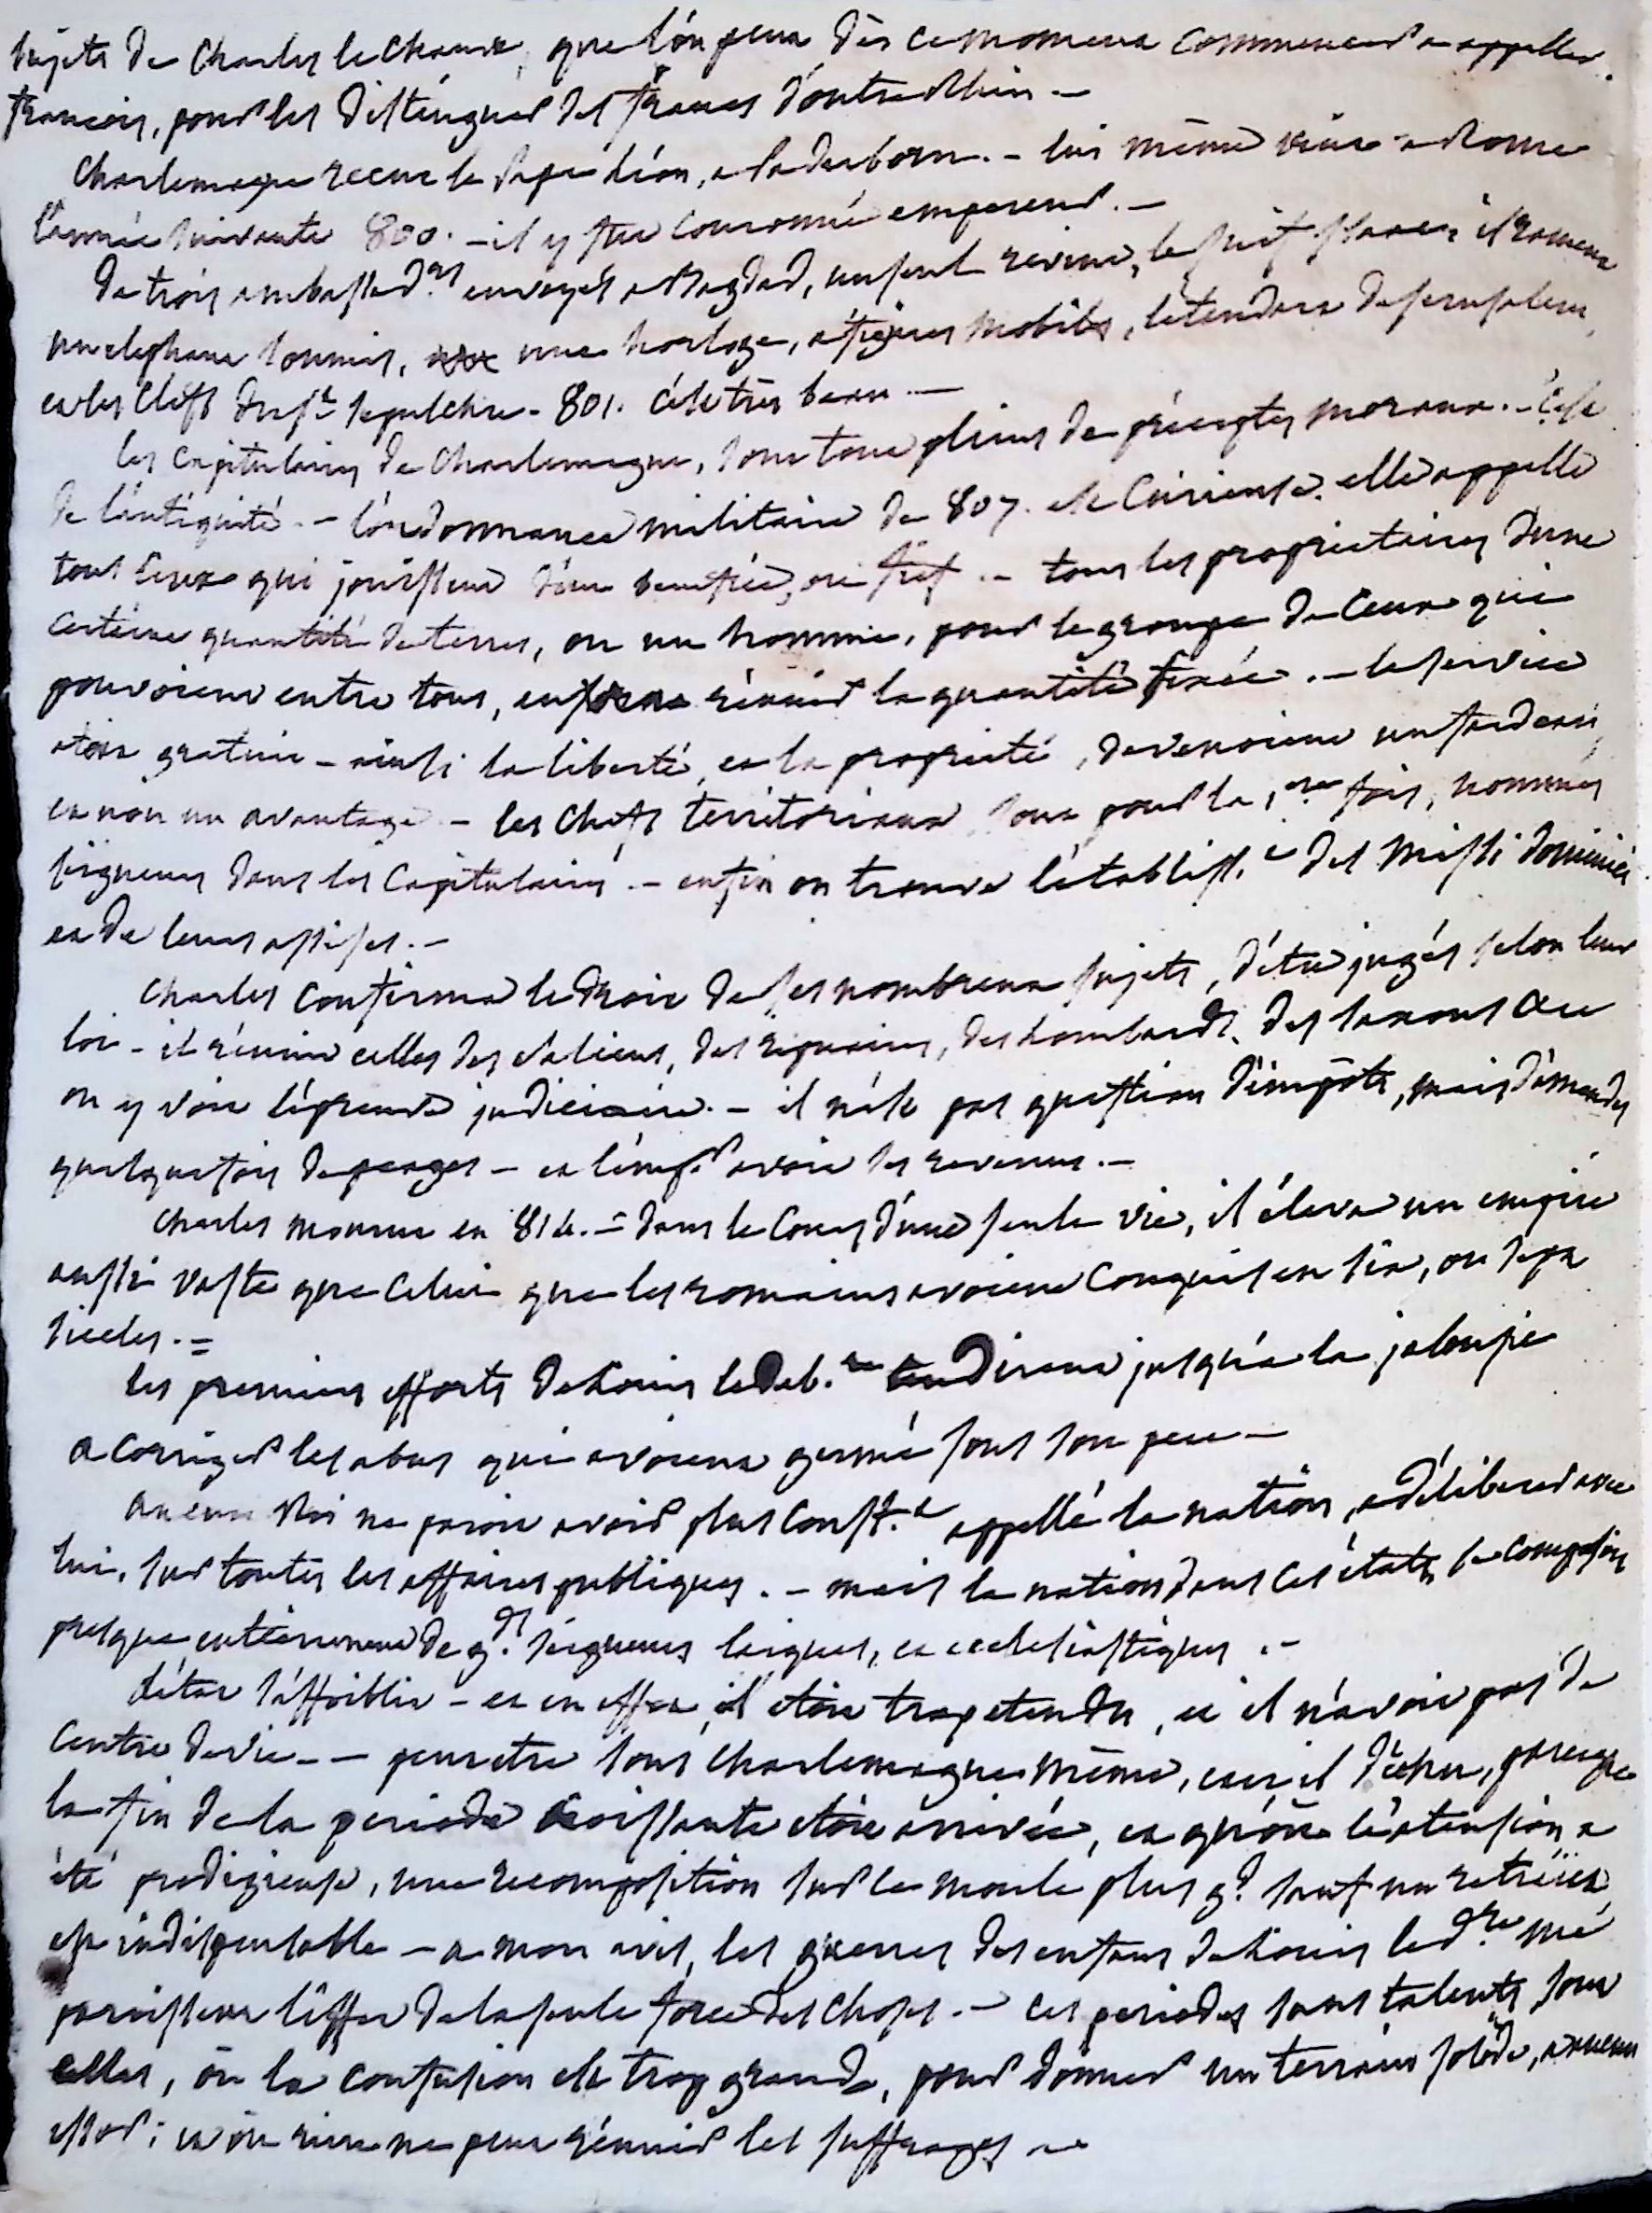 sujets de Charles le Chauve, que l'on peut dès ce moment commencer a appeller
francois, pour les distinguer des francs d'outre Rhin —
Charlemagne recut le Pape Léon, a Paderborn. — lui même vint a Rome
l'année suivante 800. — il y fut couronné empereur. —
De trois ambassad.rs envoyés a Bagdad, un seul revint, le juif Isaac; il ramena
un elephant soumis, une horloge, a figures mobiles, l'etendart de Jerusalem,
et les clefs du St Sepulchre - 801. c'est très beau —
les capitulaires de Charlemagne, sont tout pleins de préceptes moraux. — c'est
de l'antiquité. — l'ordonnance militaire de 807. est curieuse. elle appelle
tous ceux qui jouissent d'un benefice, ou fief. — tous les proprietaires d'une
certaine quantité de terres, ou un homme, pour le groupe de ceux qui
pouvoient entre tous, réunir la quantité fixée. — le service
etoit gratuit — ainsi la liberté, et la proprieté, devenoient un fardeau,
et non un avantage — les chefs territoriaux sont pour la 1.ere fois, nommés
seigneurs dans les Capitulaires. — enfin on trouve l'établiss.t des missi dominici
et de leurs assises. —
Charles confirma le droit de ses nombreux sujets, d'être jugés selon leur
loi — il réunit celles des saliens, des ripuaires, des Lombards, des saxons &c
on y voit l'épreuve judiciaire. — il n'est pas question d'impôts, mais d'amendes
quelquefois de peages — et l'emp.r avoit ses revenus. —
Charles mourut en 814. — dans le cours d'une seule vie, il éleva un empire
aussi vaste que celui que les romains avoient conquis en six, ou sept
siecles. =
les premiers efforts de Louis le Deb.re tendirent jusqu'a la jalousie
a corriger les abus qui avoient germé sous son pere —
aucun Roi ne paroit avoir plus const.t appellé la nation, a déliberer avec
lui, sur toutes les affaires publiques. — mais la nation dans ces états, se composoit
presque entierement de g.ds seigneurs laiques, et ecclesiastiques. —
L'état s'affoiblit — et en effet, il etoit trop etendu, et il n'avoit pas de
centre de vie — — peut etre sous Charlemagne même, eut il déchu, parceque
la fin de la periode croissante etoit arrivée, et qu'où l'extension a
été prodigieuse, une recomposition sur le moule plus g.d sauf un retréci
est indispensable — a mon avis, les guerres des enfans de Louis le d.re me
paroissent l'effet de la seule force des choses. — ces periodes sans talents, sont
celles, où la confusion est trop grande, pour donner un terrain solide, a aucun
essor; et où rien ne peut réunir les suffrages —